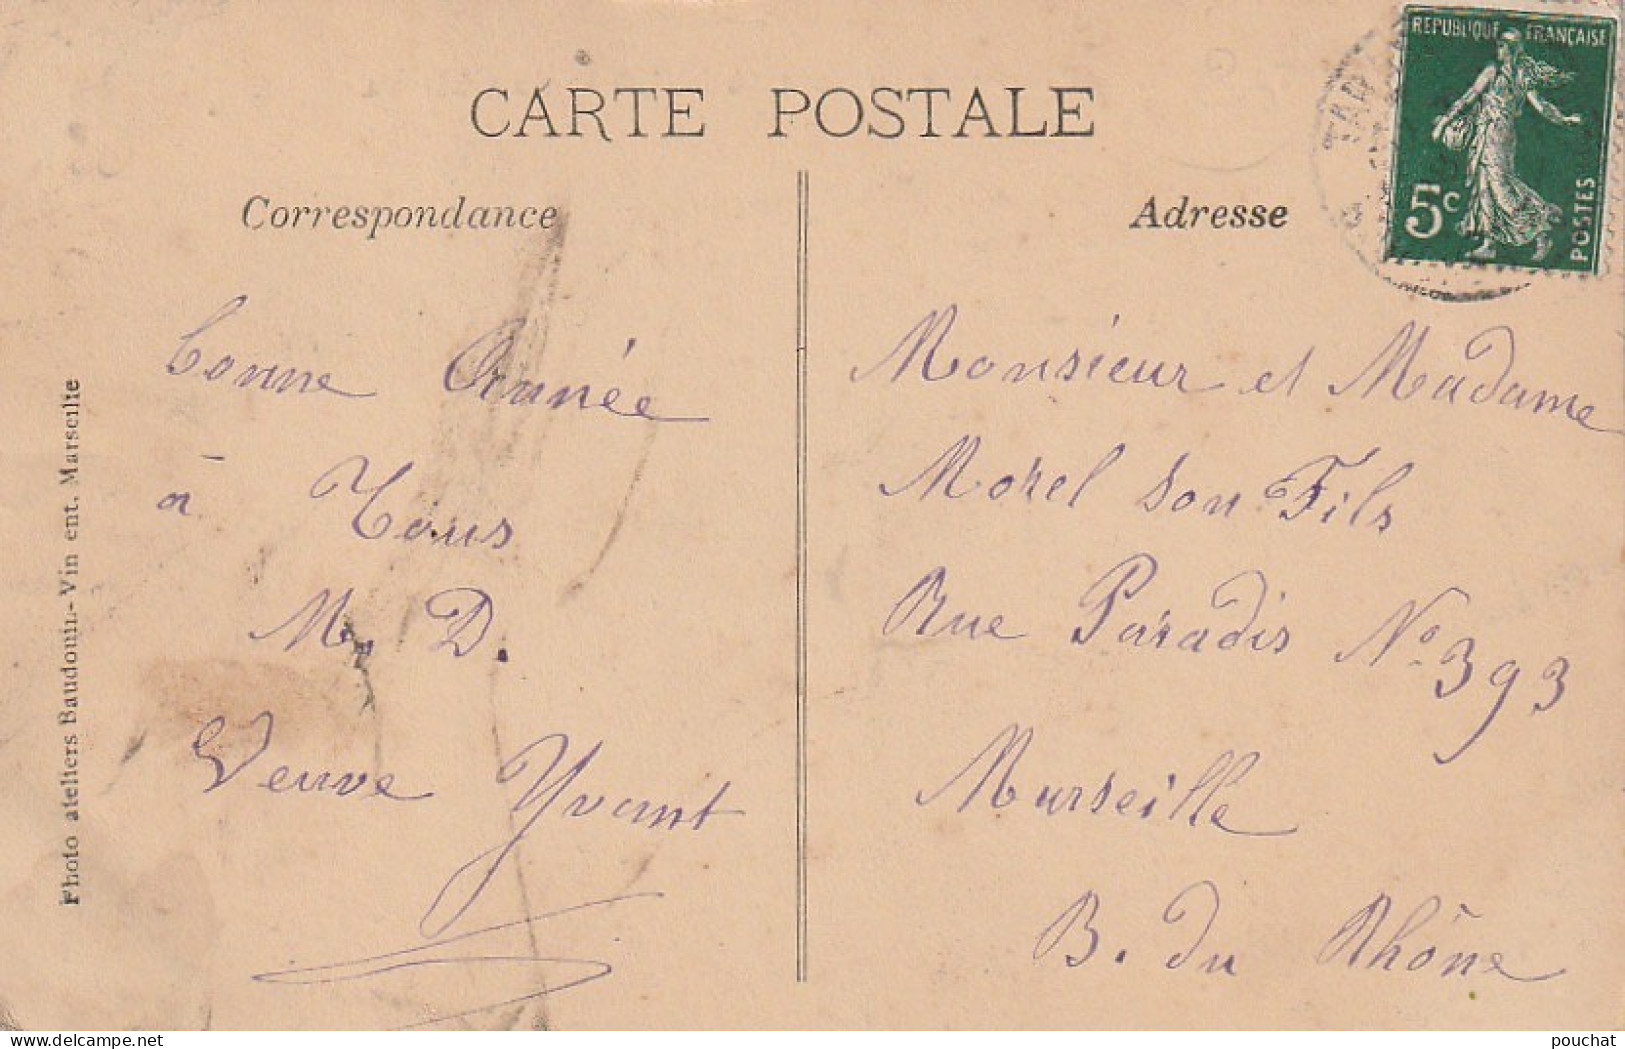 CARTE POSTALE
Correspondance
Adresse
REPUBLIQUE FRANÇAISE
5c
POSTES
TAR
Bonne Année
à Tous
M, D.
Veuve Yvant
Monsieur et Madame
Morel son Fils
Rue Paradis No 393
Marseille
B. du Rhône
Photo ateliers Baudouin-Vin ent. Marseille
delcampe.net
pouchat